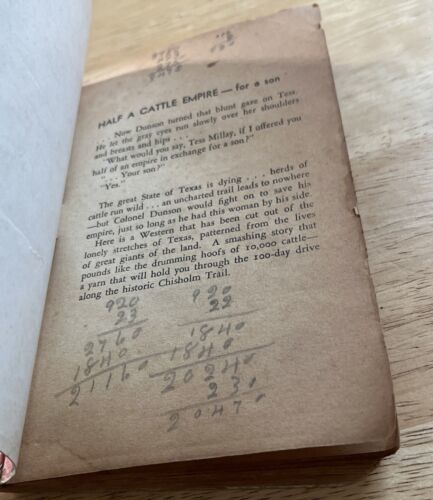 HALF A CATTLE EMPIRE — for a son
. . . Now Dunson turned that blunt gaze on Tess.
He let the gray eyes run slowly over her shoulders
and breasts and hips . . .
"What would you say, Tess Millay, if I offered you
half of an empire in exchange for a son?"
". . . Your son?"
"Yes."
The great State of Texas is dying . . . herds of
cattle run wild . . . an uncharted trail leads to nowhere
—but Colonel Dunson would fight on to save his
empire, just so long as he had this woman by his side.
Here is a Western that has been cut out of the
lonely stretches of Texas, patterned from the lives
of great giants of the land. A smashing story that
pounds like the drumming hoofs of 10,000 cattle—
a yarn that will hold you through the 100-day drive
along the historic Chisholm Trail.
920 920
23 22
2760 1840
1840 1840
21160 20240
230
20470